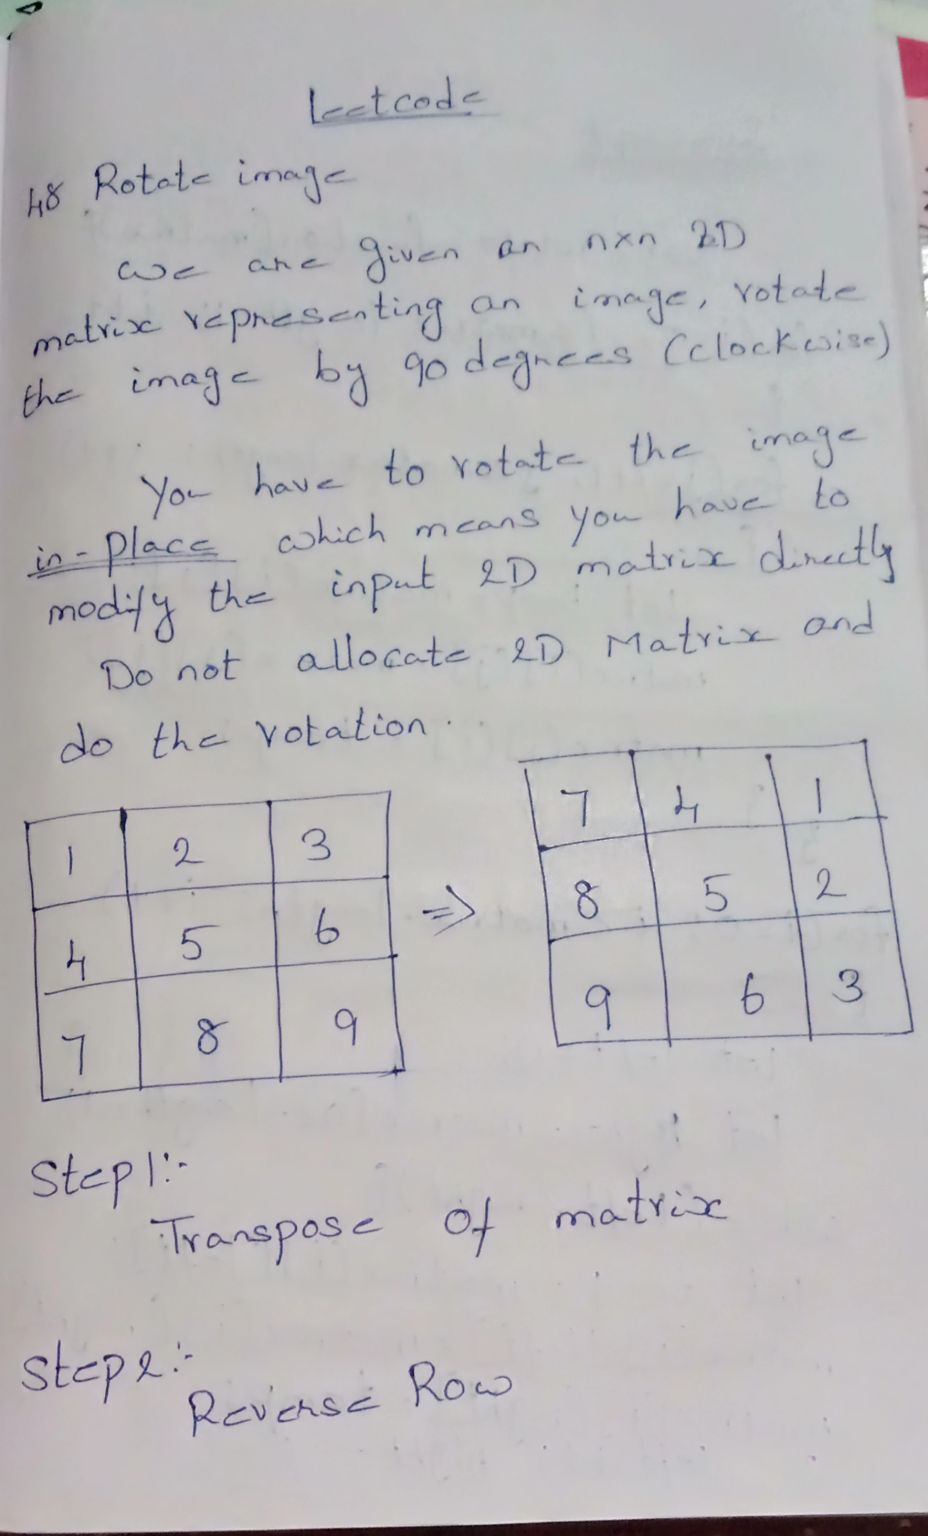 Leetcode
48 Rotate image
We are given an nxn 2D
matrix representing an image, rotate
the image by 90 degrees (clockwise)
You have to rotate the image
in-place which means you have to
modify the input 2D matrix directly
Do not allocate 2D Matrix and
do the rotation.
1 2 3 ⇒ 7 4 1
4 5 6 8 5 2
7 8 9 9 6 3
Step1:-
Transpose of matrix
Step2:-
Reverse Row